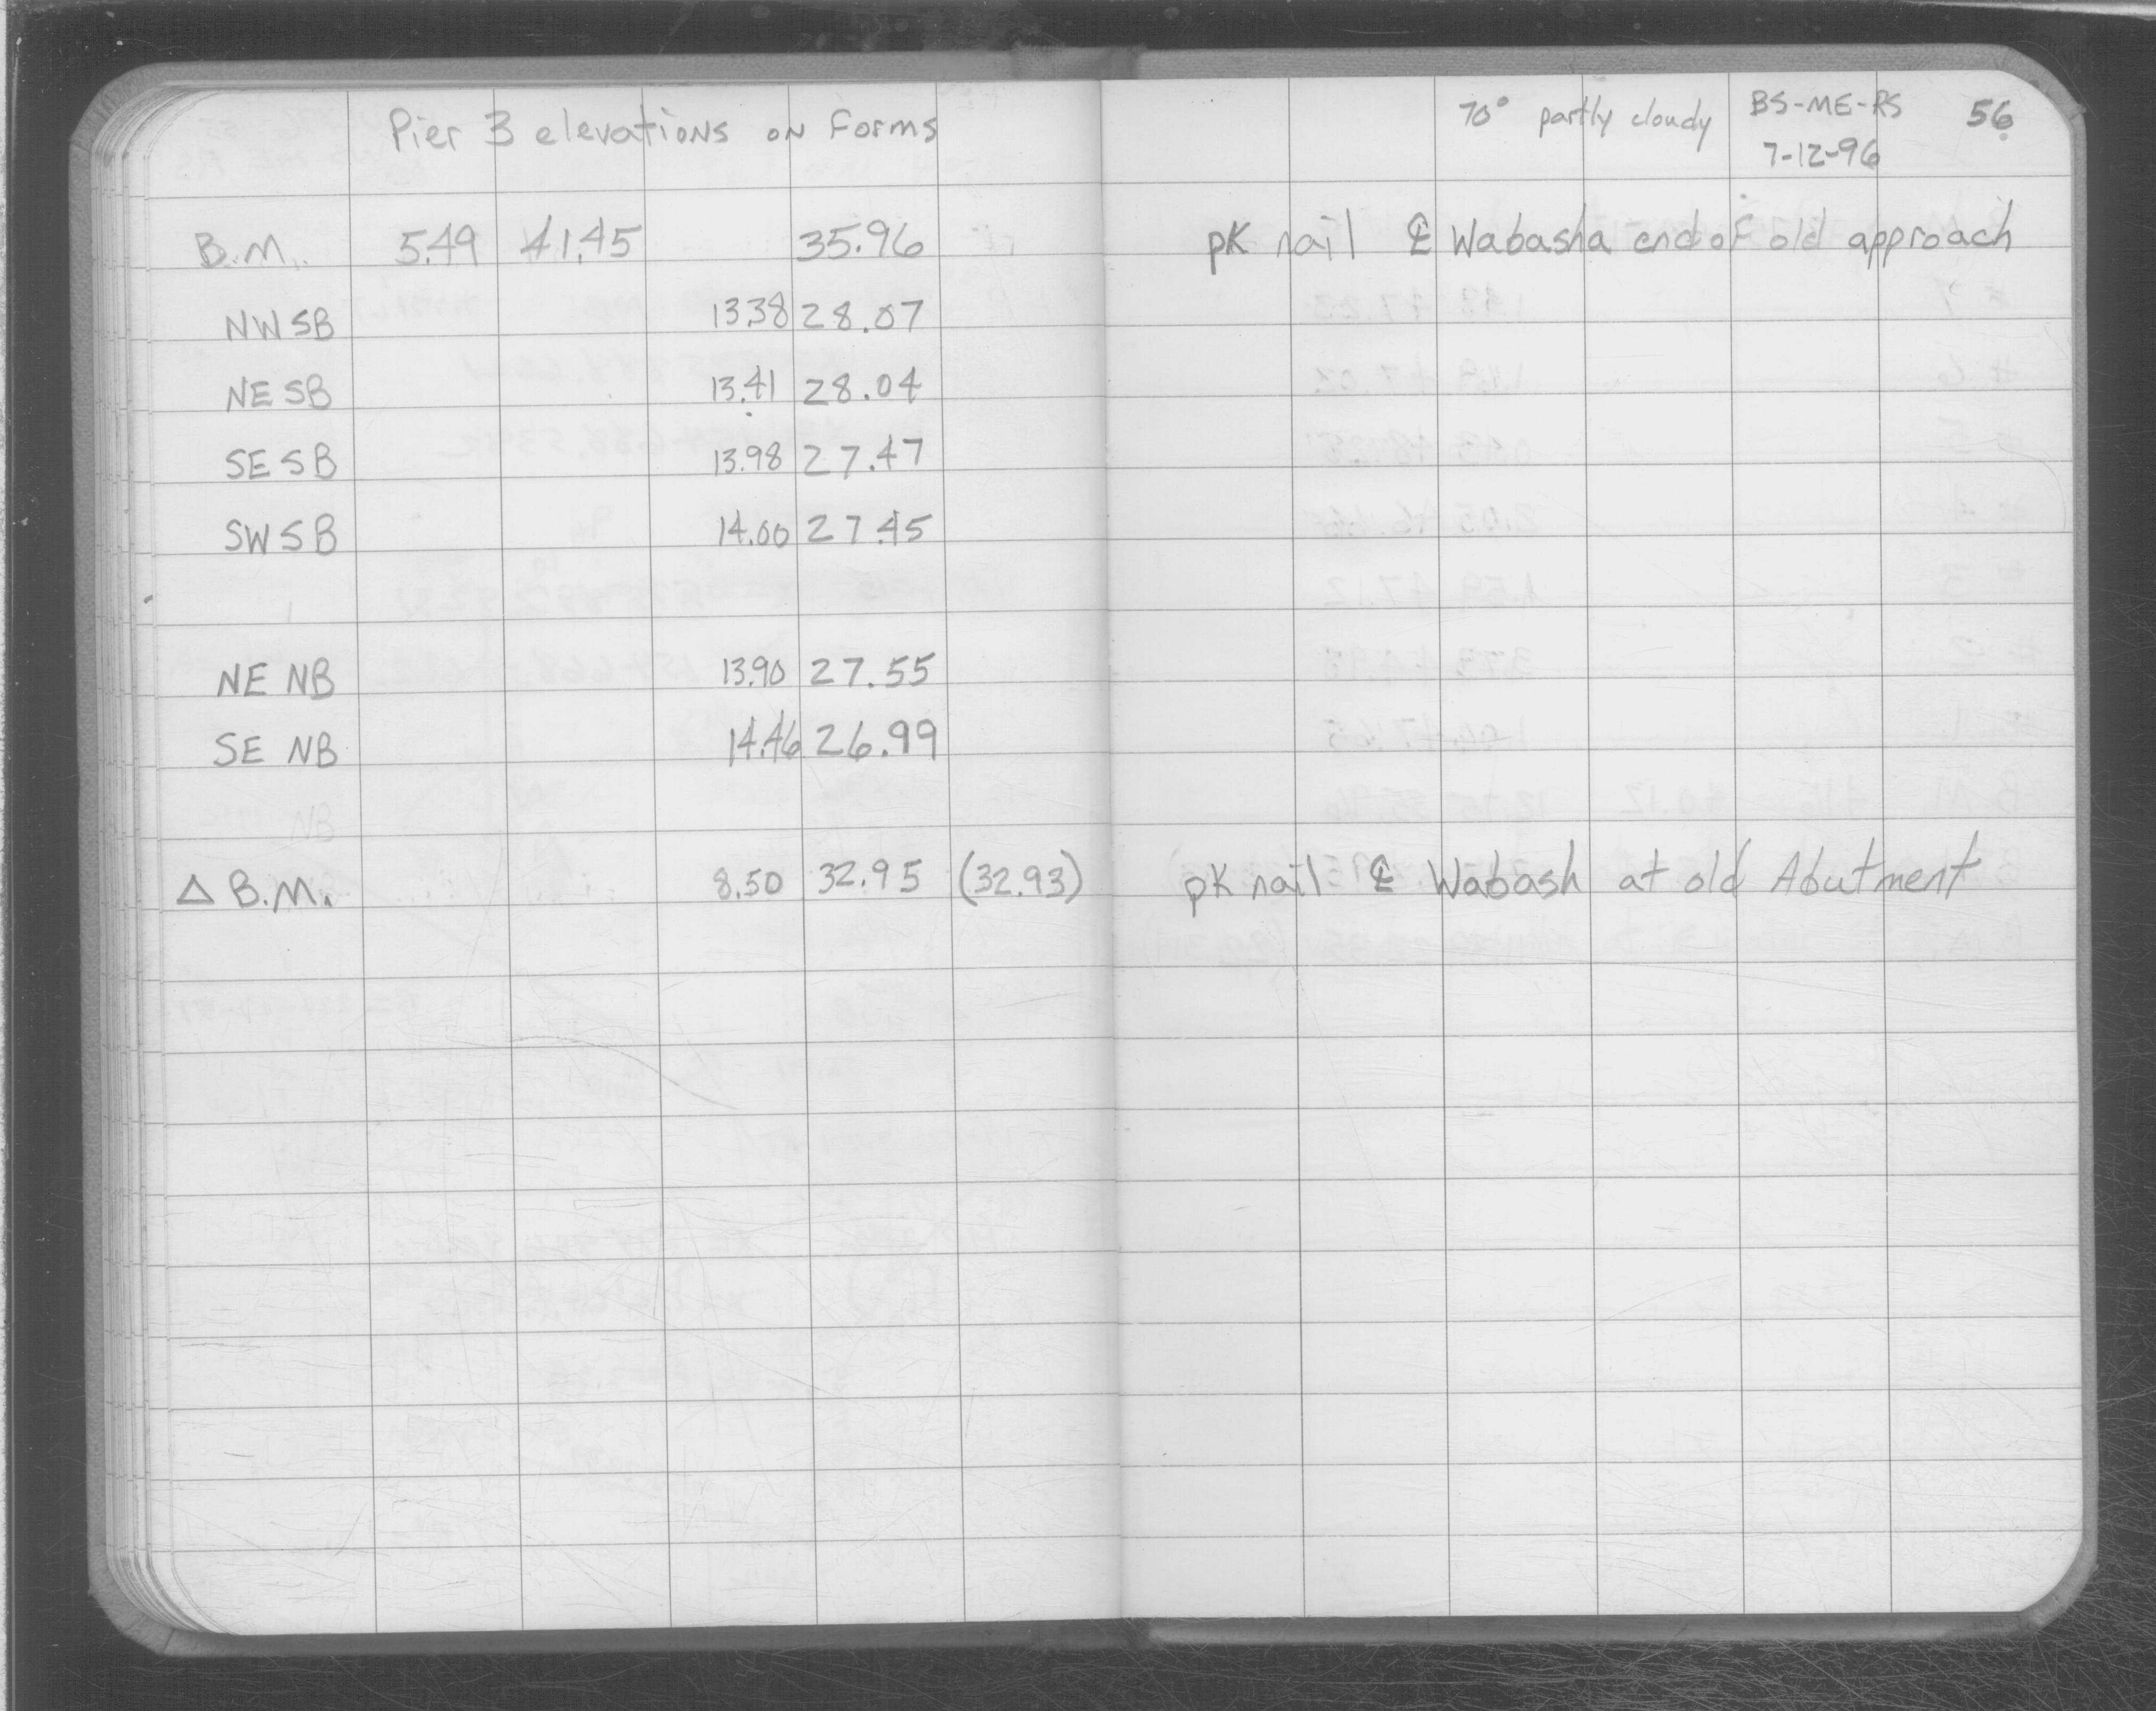 Pier 3 elevations on Forms
70° partly cloudy BS-ME-RS 56
7-12-96
B.M. 5.49 41.45 35.96 pK nail ℄ Wabasha end of old approach
NW SB 13.38 28.07
NE SB 13.41 28.04
SE SB 13.98 27.47
SW SB 14.00 27.45
NE NB 13.90 27.55
SE NB 14.46 26.99
NB
△ B.M. 8.50 32.95 (32.93) pK nail ℄ Wabash at old Abutment